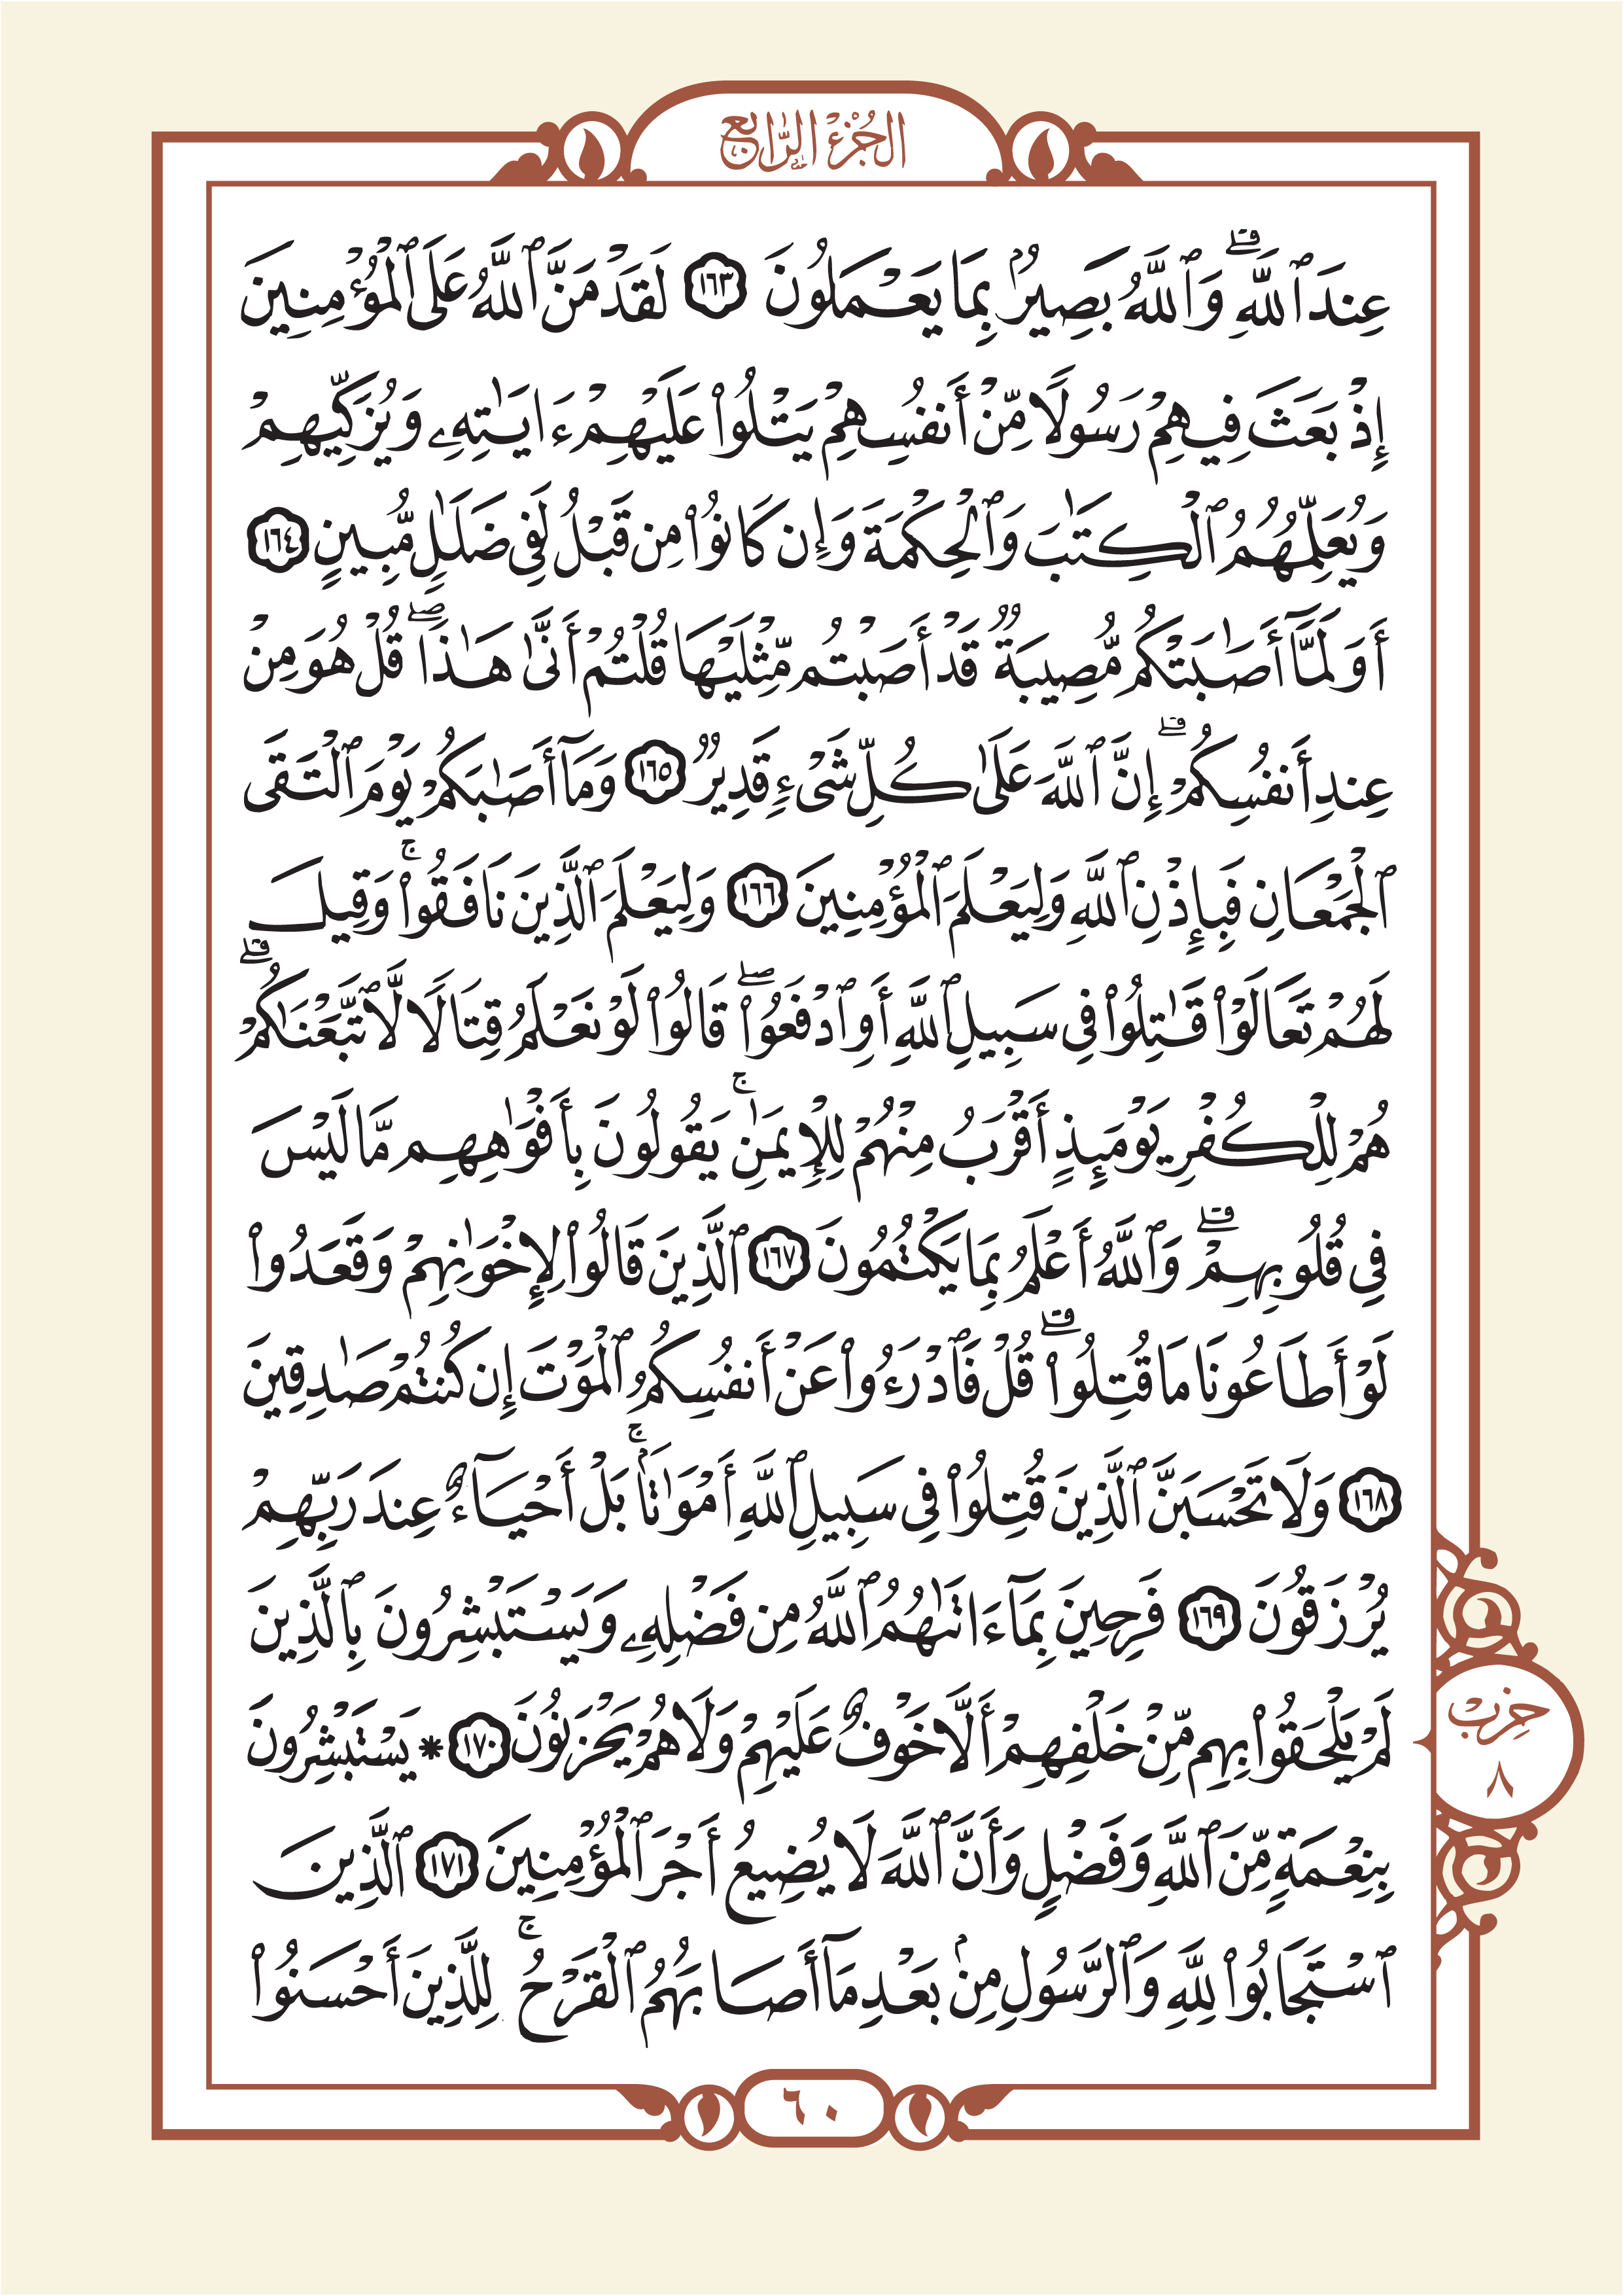 الجُزْءُ الرَّابِعُ
عِندَ ٱللَّهِۗ وَٱللَّهُ بَصِيرُۢ بِمَا يَعۡمَلُونَ ١٦٣ لَقَدۡ مَنَّ ٱللَّهُ عَلَى ٱلۡمُؤۡمِنِينَ
إِذۡ بَعَثَ فِيهِمۡ رَسُولٗا مِّنۡ أَنفُسِهِمۡ يَتۡلُواْ عَلَيۡهِمۡ ءَايَٰتِهِۦ وَيُزَكِّيهِمۡ
وَيُعَلِّمُهُمُ ٱلۡكِتَٰبَ وَٱلۡحِكۡمَةَ وَإِن كَانُواْ مِن قَبۡلُ لَفِي ضَلَٰلٖ مُّبِينٍ ١٦٤
أَوَلَمَّآ أَصَٰبَتۡكُم مُّصِيبَةٞ قَدۡ أَصَبۡتُم مِّثۡلَيۡهَا قُلۡتُمۡ أَنَّىٰ هَٰذَاۖ قُلۡ هُوَ مِنۡ
عِندِ أَنفُسِكُمۡۗ إِنَّ ٱللَّهَ عَلَىٰ كُلِّ شَيۡءٖ قَدِيرٞ ١٦٥ وَمَآ أَصَٰبَكُمۡ يَوۡمَ ٱلۡتَقَى
ٱلۡجَمۡعَانِ فَبِإِذۡنِ ٱللَّهِ وَلِيَعۡلَمَ ٱلۡمُؤۡمِنِينَ ١٦٦ وَلِيَعۡلَمَ ٱلَّذِينَ نَافَقُواْۚ وَقِيلَ
لَهُمۡ تَعَالَوۡاْ قَٰتِلُواْ فِي سَبِيلِ ٱللَّهِ أَوِ ٱدۡفَعُواْۖ قَالُواْ لَوۡ نَعۡلَمُ قِتَالٗا لَّٱتَّبَعۡنَٰكُمۡۗ
هُمۡ لِلۡكُفۡرِ يَوۡمَئِذٍ أَقۡرَبُ مِنۡهُمۡ لِلۡإِيمَٰنِۚ يَقُولُونَ بِأَفۡوَٰهِهِم مَّا لَيۡسَ
فِي قُلُوبِهِمۡۚ وَٱللَّهُ أَعۡلَمُ بِمَا يَكۡتُمُونَ ١٦٧ ٱلَّذِينَ قَالُواْ لِإِخۡوَٰنِهِمۡ وَقَعَدُواْ
لَوۡ أَطَاعُونَا مَا قُتِلُواْۗ قُلۡ فَٱدۡرَءُواْ عَنۡ أَنفُسِكُمُ ٱلۡمَوۡتَ إِن كُنتُمۡ صَٰدِقِينَ
١٦٨ وَلَا تَحۡسَبَنَّ ٱلَّذِينَ قُتِلُواْ فِي سَبِيلِ ٱللَّهِ أَمۡوَٰتَۢاۚ بَلۡ أَحۡيَآءٌ عِندَ رَبِّهِمۡ
يُرۡزَقُونَ ١٦٩ فَرِحِينَ بِمَآ ءَاتَىٰهُمُ ٱللَّهُ مِن فَضۡلِهِۦ وَيَسۡتَبۡشِرُونَ بِٱلَّذِينَ
لَمۡ يَلۡحَقُواْ بِهِم مِّنۡ خَلۡفِهِمۡ أَلَّا خَوۡفٌ عَلَيۡهِمۡ وَلَا هُمۡ يَحۡزَنُونَ ١٧٠ * يَسۡتَبۡشِرُونَ
حِزْب
٨
بِنِعۡمَةٖ مِّنَ ٱللَّهِ وَفَضۡلٖ وَأَنَّ ٱللَّهَ لَا يُضِيعُ أَجۡرَ ٱلۡمُؤۡمِنِينَ ١٧١ ٱلَّذِينَ
ٱسۡتَجَابُواْ لِلَّهِ وَٱلرَّسُولِ مِنۢ بَعۡدِ مَآ أَصَابَهُمُ ٱلۡقَرۡحُۚ لِلَّذِينَ أَحۡسَنُواْ
٦٠